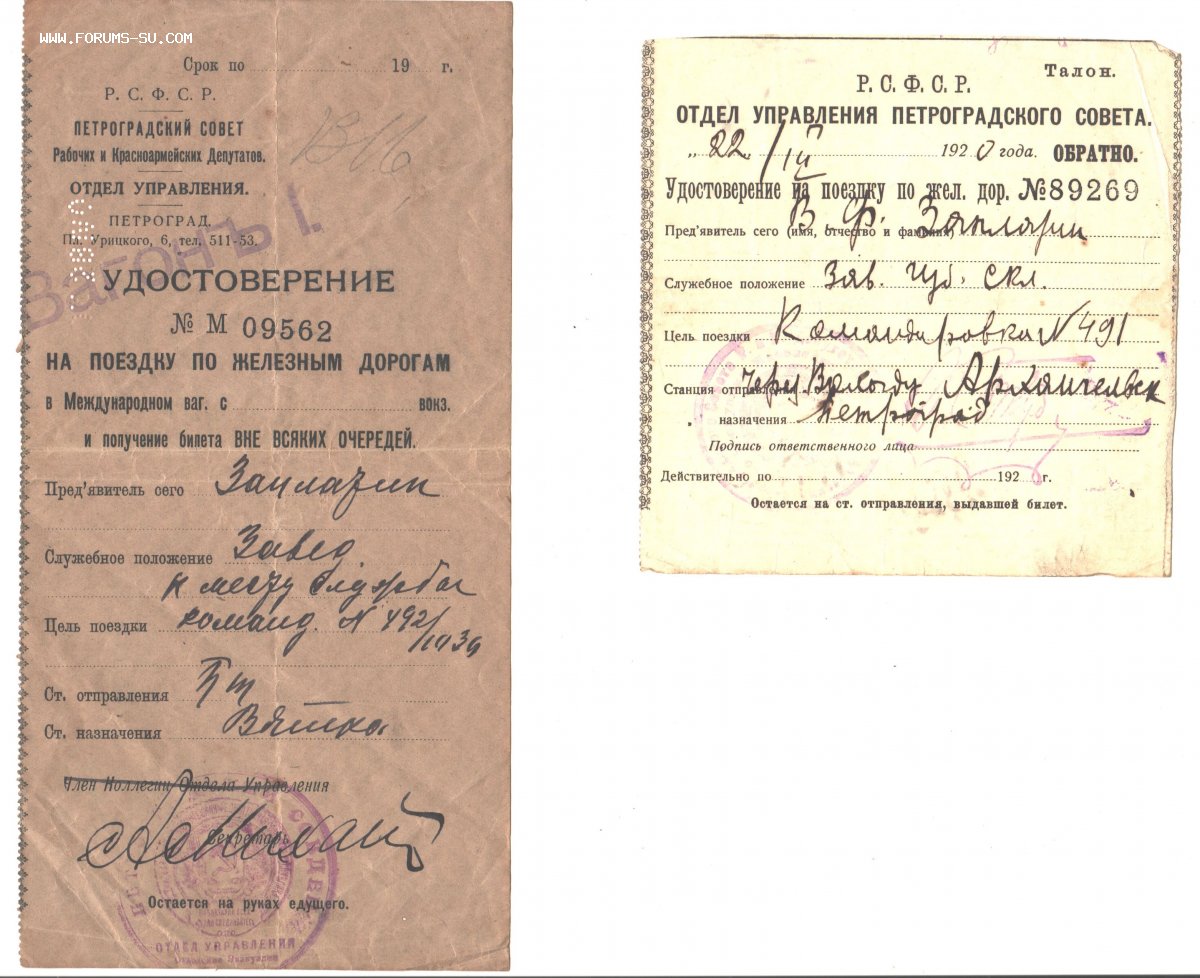 www.forums-su.com
Срок по 19 г.
Р. С. Ф. С. Р.
ПЕТРОГРАДСКИЙ СОВЕТ
Рабочих и Красноармейских Депутатов.
ОТДЕЛ УПРАВЛЕНИЯ.
ПЕТРОГРАД.
Пл. Урицкого, 6, тел. 511-53.
Вагонъ I.
УДОСТОВЕРЕНИЕ
№ М 09562
НА ПОЕЗДКУ ПО ЖЕЛЕЗНЫМ ДОРОГАМ
в Международном ваг. с вокз.
и получение билета ВНЕ ВСЯКИХ ОЧЕРЕДЕЙ.
Пред'явитель сего
Служебное положение Завед
к месту службы
Цель поездки команд. N 492/
Ст. отправления Пт
Ст. назначения Вятка
Член Коллегии Отдела Управления
Секретарь
Остается на руках едущего.
ОТДЕЛ УПРАВЛЕНИЯ
Талон.
Р. С. Ф. С. Р.
ОТДЕЛ УПРАВЛЕНИЯ ПЕТРОГРАДСКОГО СОВЕТА.
„ 22 / 1920 года. ОБРАТНО.
Удостоверение на поездку по жел. дор. №89269
Пред'явитель сего (имя, отчество и фамилия) В. Ф.
Служебное положение Зав. губ. скл.
Цель поездки Командировка N 491
Станция отправления через Вологду Архангельск
назначения Петроград
Подпись ответственного лица
Действительно по 192 г.
Остается на ст. отправления, выдавшей билет.